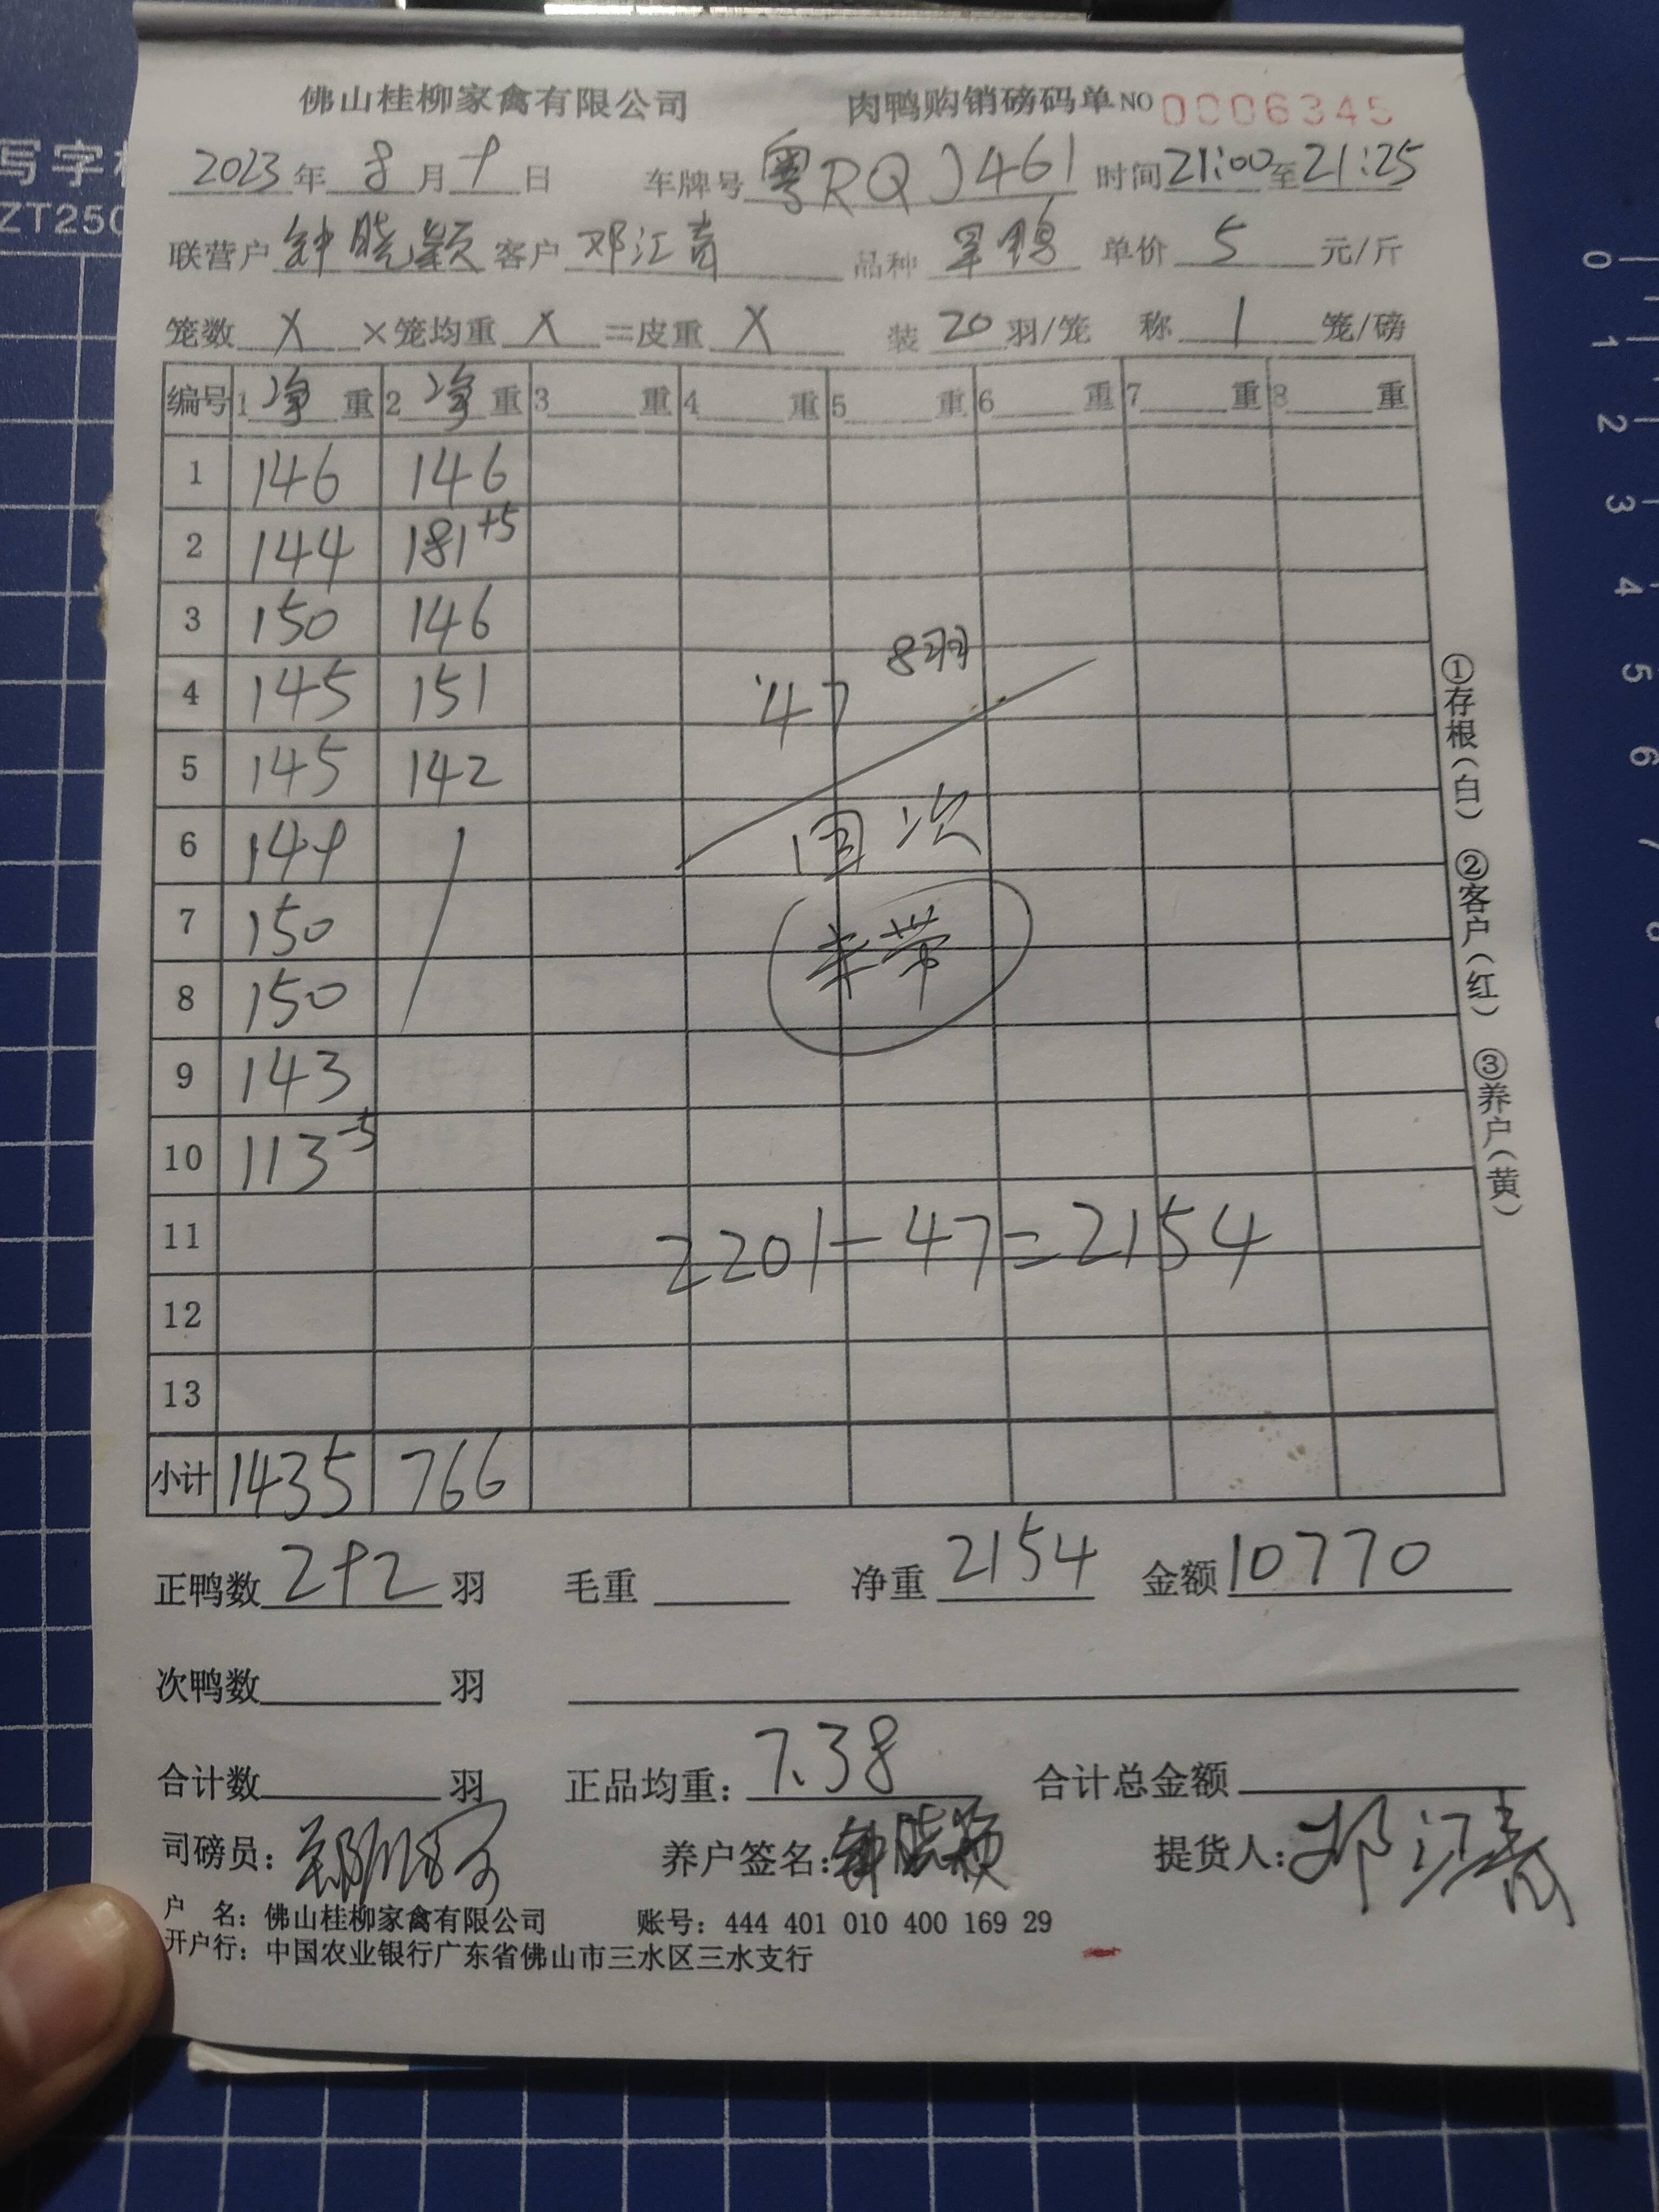 写字
ZT250
佛山桂柳家禽有限公司 肉鸭购销磅码单 NO 0006345
2023 年 8 月 9 日 车牌号 粤RQJ461 时间 21:00 至 21:25
联营户 钟晓颖 客户 邓江青 品种 单价 5 元/斤
笼数 X ×笼均重 X =皮重 X 装 20 羽/笼 称 1 笼/磅
编号 1 净 重 2 净 重 3 重 4 重 5 重 6 重 7 重 8 重
1 146 146
2 144 181+5
3 150 146
4 145 151 47 8羽
5 145 142
6 149 回次
7 150 未带
8 150
9 143
10 113-5
11 2201-47=2154
12
13
小计 1435 766
正鸭数 292 羽 毛重 净重 2154 金额 10770
次鸭数 羽
合计数 羽 正品均重: 7.38 合计总金额
司磅员: 养户签名: 钟晓颖 提货人: 邓江青
户 名: 佛山桂柳家禽有限公司 账号: 444 401 010 400 169 29
开户行: 中国农业银行广东省佛山市三水区三水支行
①存根(白) ②客户(红) ③养户(黄)
0
1
2
3
4
5
6
7
8